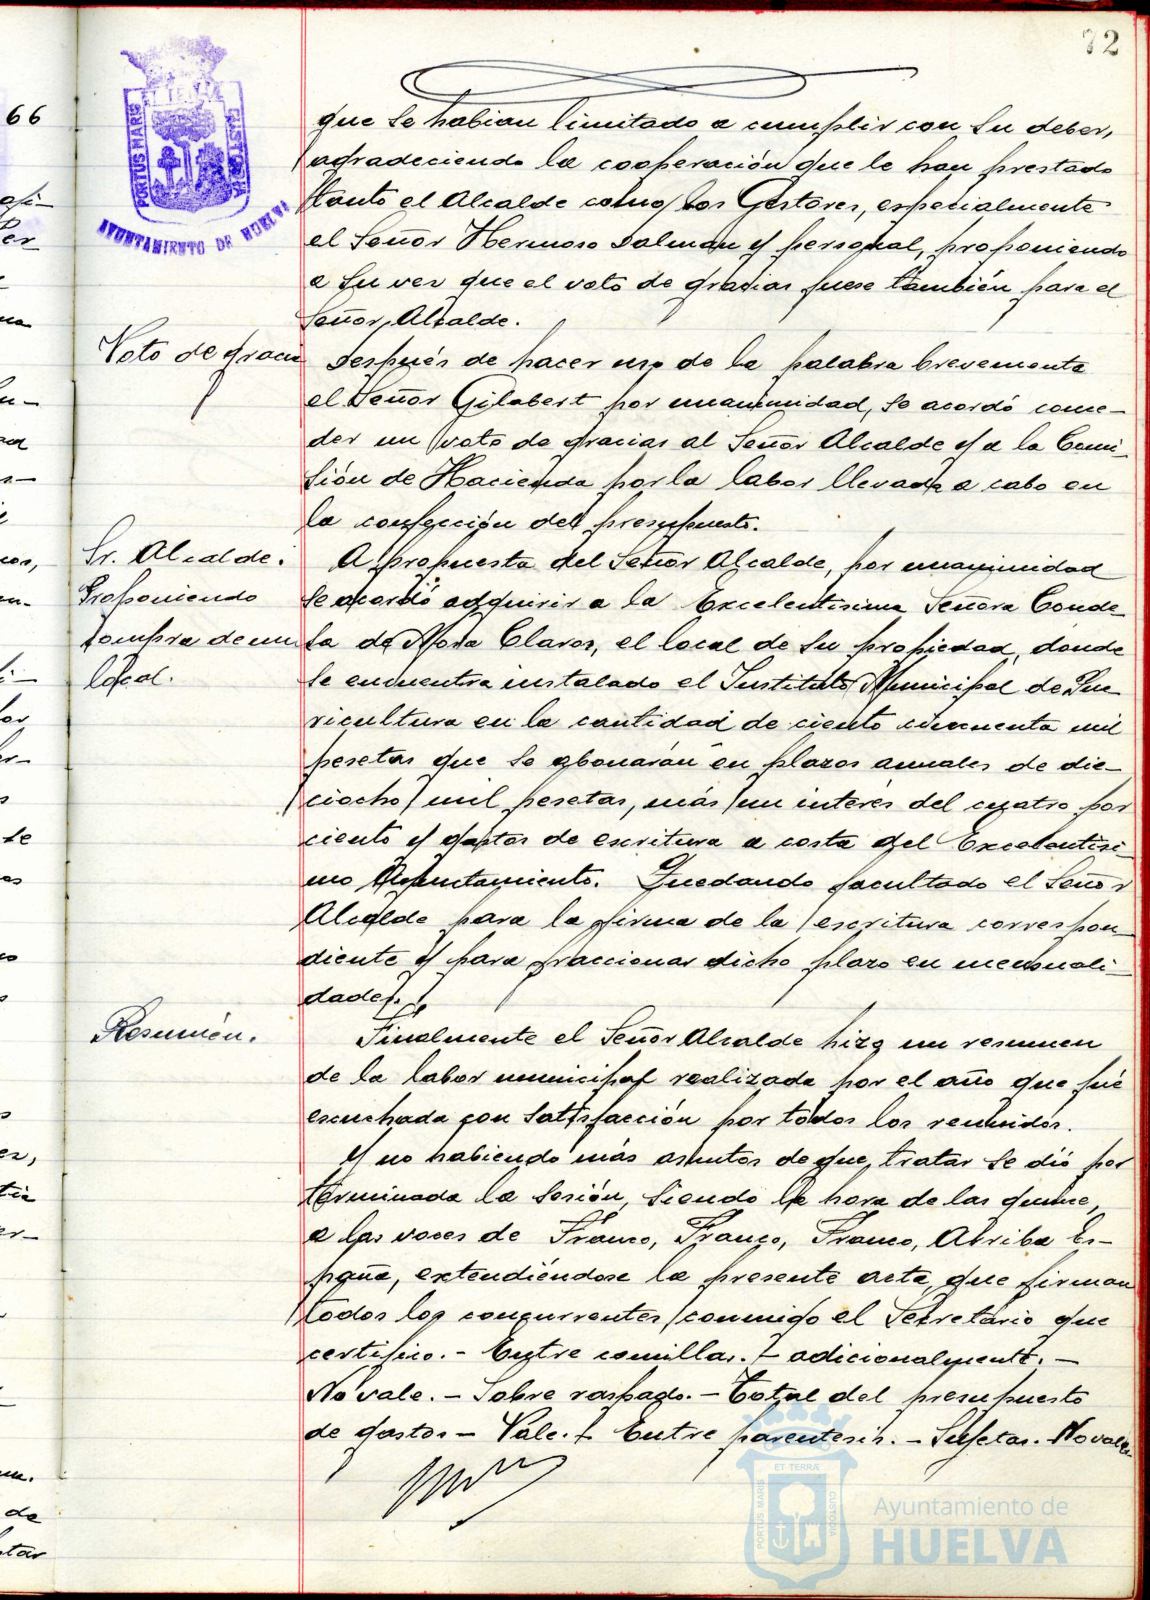 72
PORTUS MARIS
ET TERRÆ
CUSTODIA
AYUNTAMIENTO DE HUELVA
66
que se habían limitado a cumplir con su deber,
agradeciendo la cooperación que le han prestado
tanto el Alcalde como los Gestores, especialmente
el Señor Hermoso Dalman y personal, proponiendo
a su vez que el voto de gracias fuese también para el
Señor Alcalde.
Voto de gracia
Después de hacer uso de la palabra brevemente
el Señor Gilabert por unanimidad, se acordó conce-
der un voto de gracias al Señor Alcalde y a la Comi-
sión de Hacienda por la labor llevada a cabo en
la confección del presupuesto.
Sr. Alcalde:
Proponiendo
compra de un
local.
A propuesta del Señor Alcalde, por unanimidad
se acordó adquirir a la Excelentísima Señora Conde-
sa de Mora Claros, el local de su propiedad, donde
se encuentra instalado el Instituto Municipal de Pue-
ricultura en la cantidad de ciento cincuenta mil
pesetas que se abonarán en plazos anuales de die-
ciocho mil pesetas, más un interés del cuatro por
ciento y gastos de escritura a costa del Excelentísi-
mo Ayuntamiento. Quedando facultado el Señor
Alcalde para la firma de la escritura correspon-
diente y para fraccionar dicho plazo en mensuali-
dades.
Resumén.
Finalmente el Señor Alcalde hizo un resumen
de la labor municipal realizada por el año que fué
escuchada con satisfacción por todos los reunidos.
Y no habiendo más asuntos de que tratar se dió por
terminada la sesión, siendo la hora de las quince,
a las voces de Franco, Franco, Franco, Arriba Es-
paña, extendiéndose la presente acta, que firman
todos los concurrentes conmigo el Secretario que
certifico.- Entre comillas.- adicionalmente.-
No vale.- Sobre raspado.- Total del presupuesto
de gastos- Vale.- Entre parentesis.- Sujetas. No vale.
PORTUS MARIS
ET TERRÆ
CUSTODIA
Ayuntamiento de
HUELVA